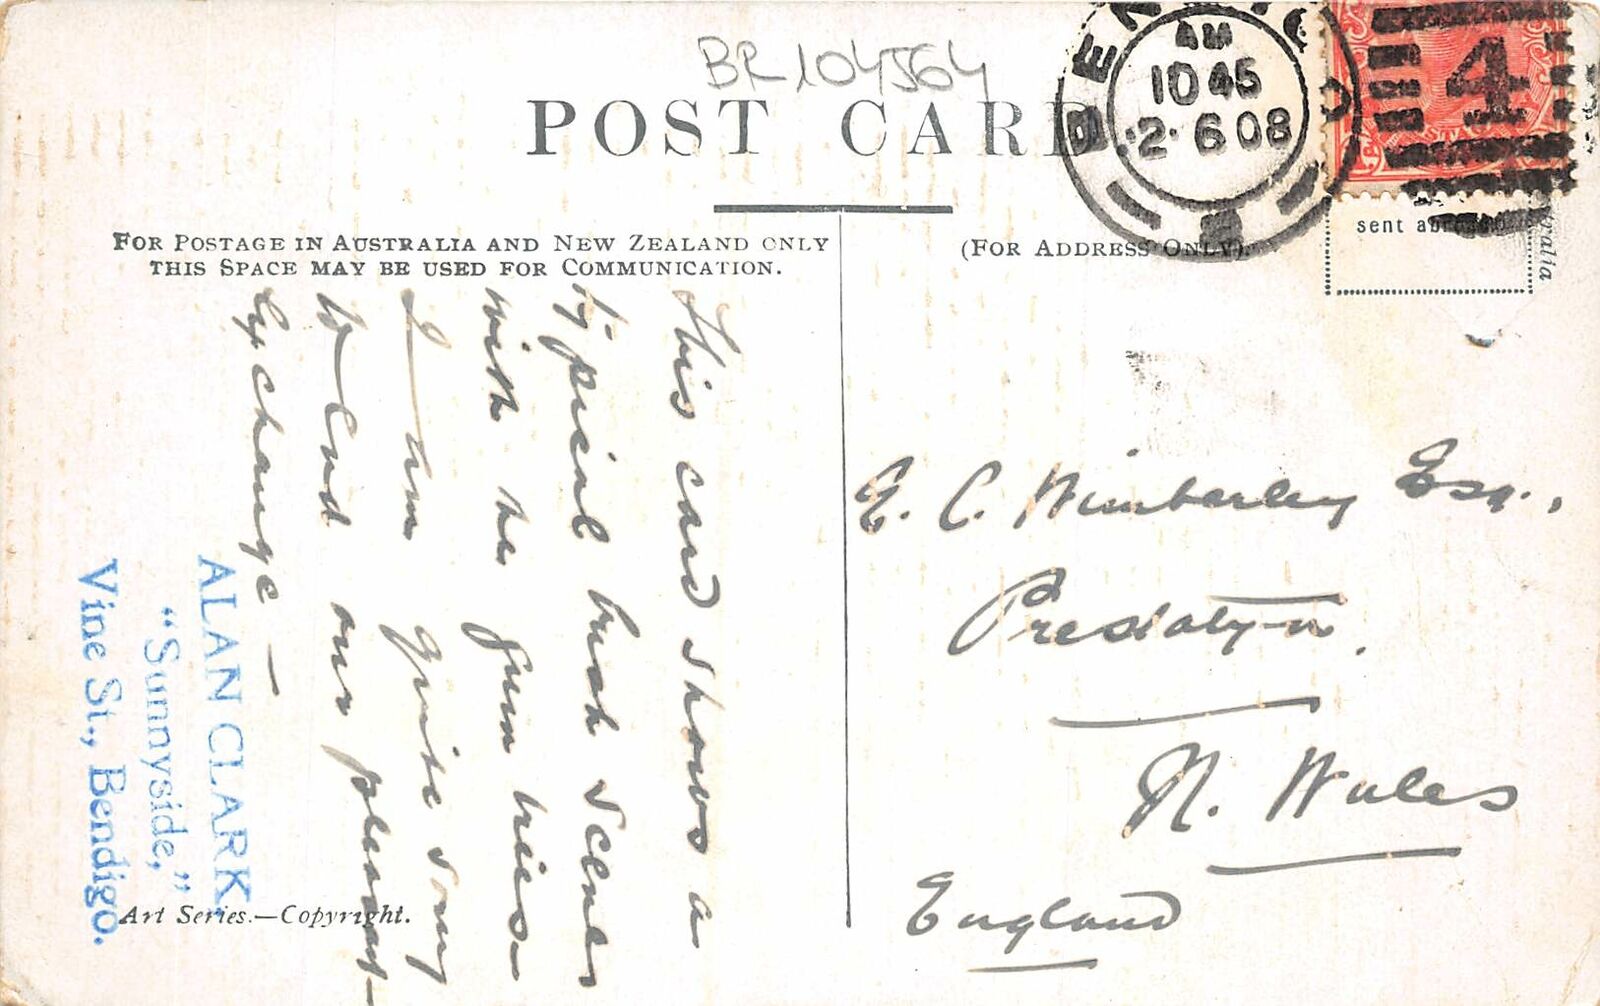 BR 104564
POST CARD
BENDIGO
AM
10 45
2. 6 08
4
POSTAGE
FOR POSTAGE IN AUSTRALIA AND NEW ZEALAND ONLY
THIS SPACE MAY BE USED FOR COMMUNICATION.
(FOR ADDRESS ONLY).
sent abroad
This card shows a
typical bush scene
with the gum trees
I am quite sorry
to end our pleasant
exchange —
ALAN CLARK,
"Sunnyside,"
Vine St., Bendigo.
Art Series.—Copyright.
E. C. Wimberley Esq.,
Prestatyn.
N. Wales
England